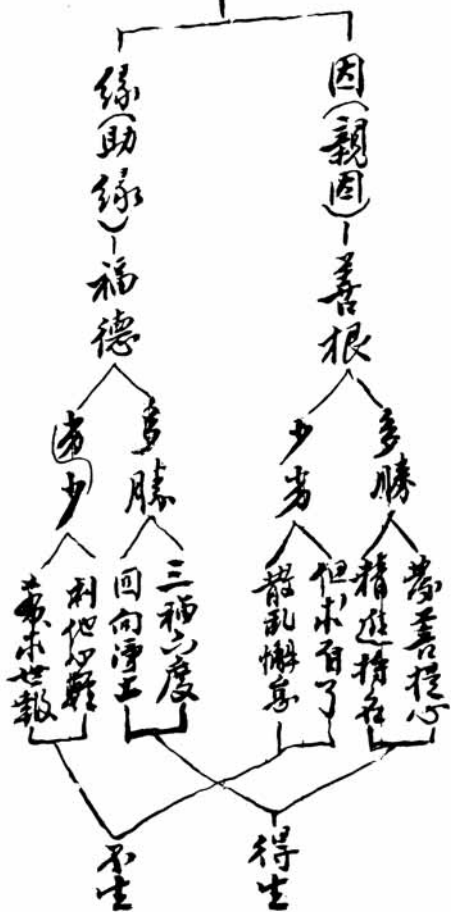 因(親因)
善根
多勝
發菩提心
精進持名
少劣
但求自了
散亂懈怠
緣(助緣)
福德
多勝
三福六度
回向淨土
劣少
利他心輕
希求世報
得生
不生